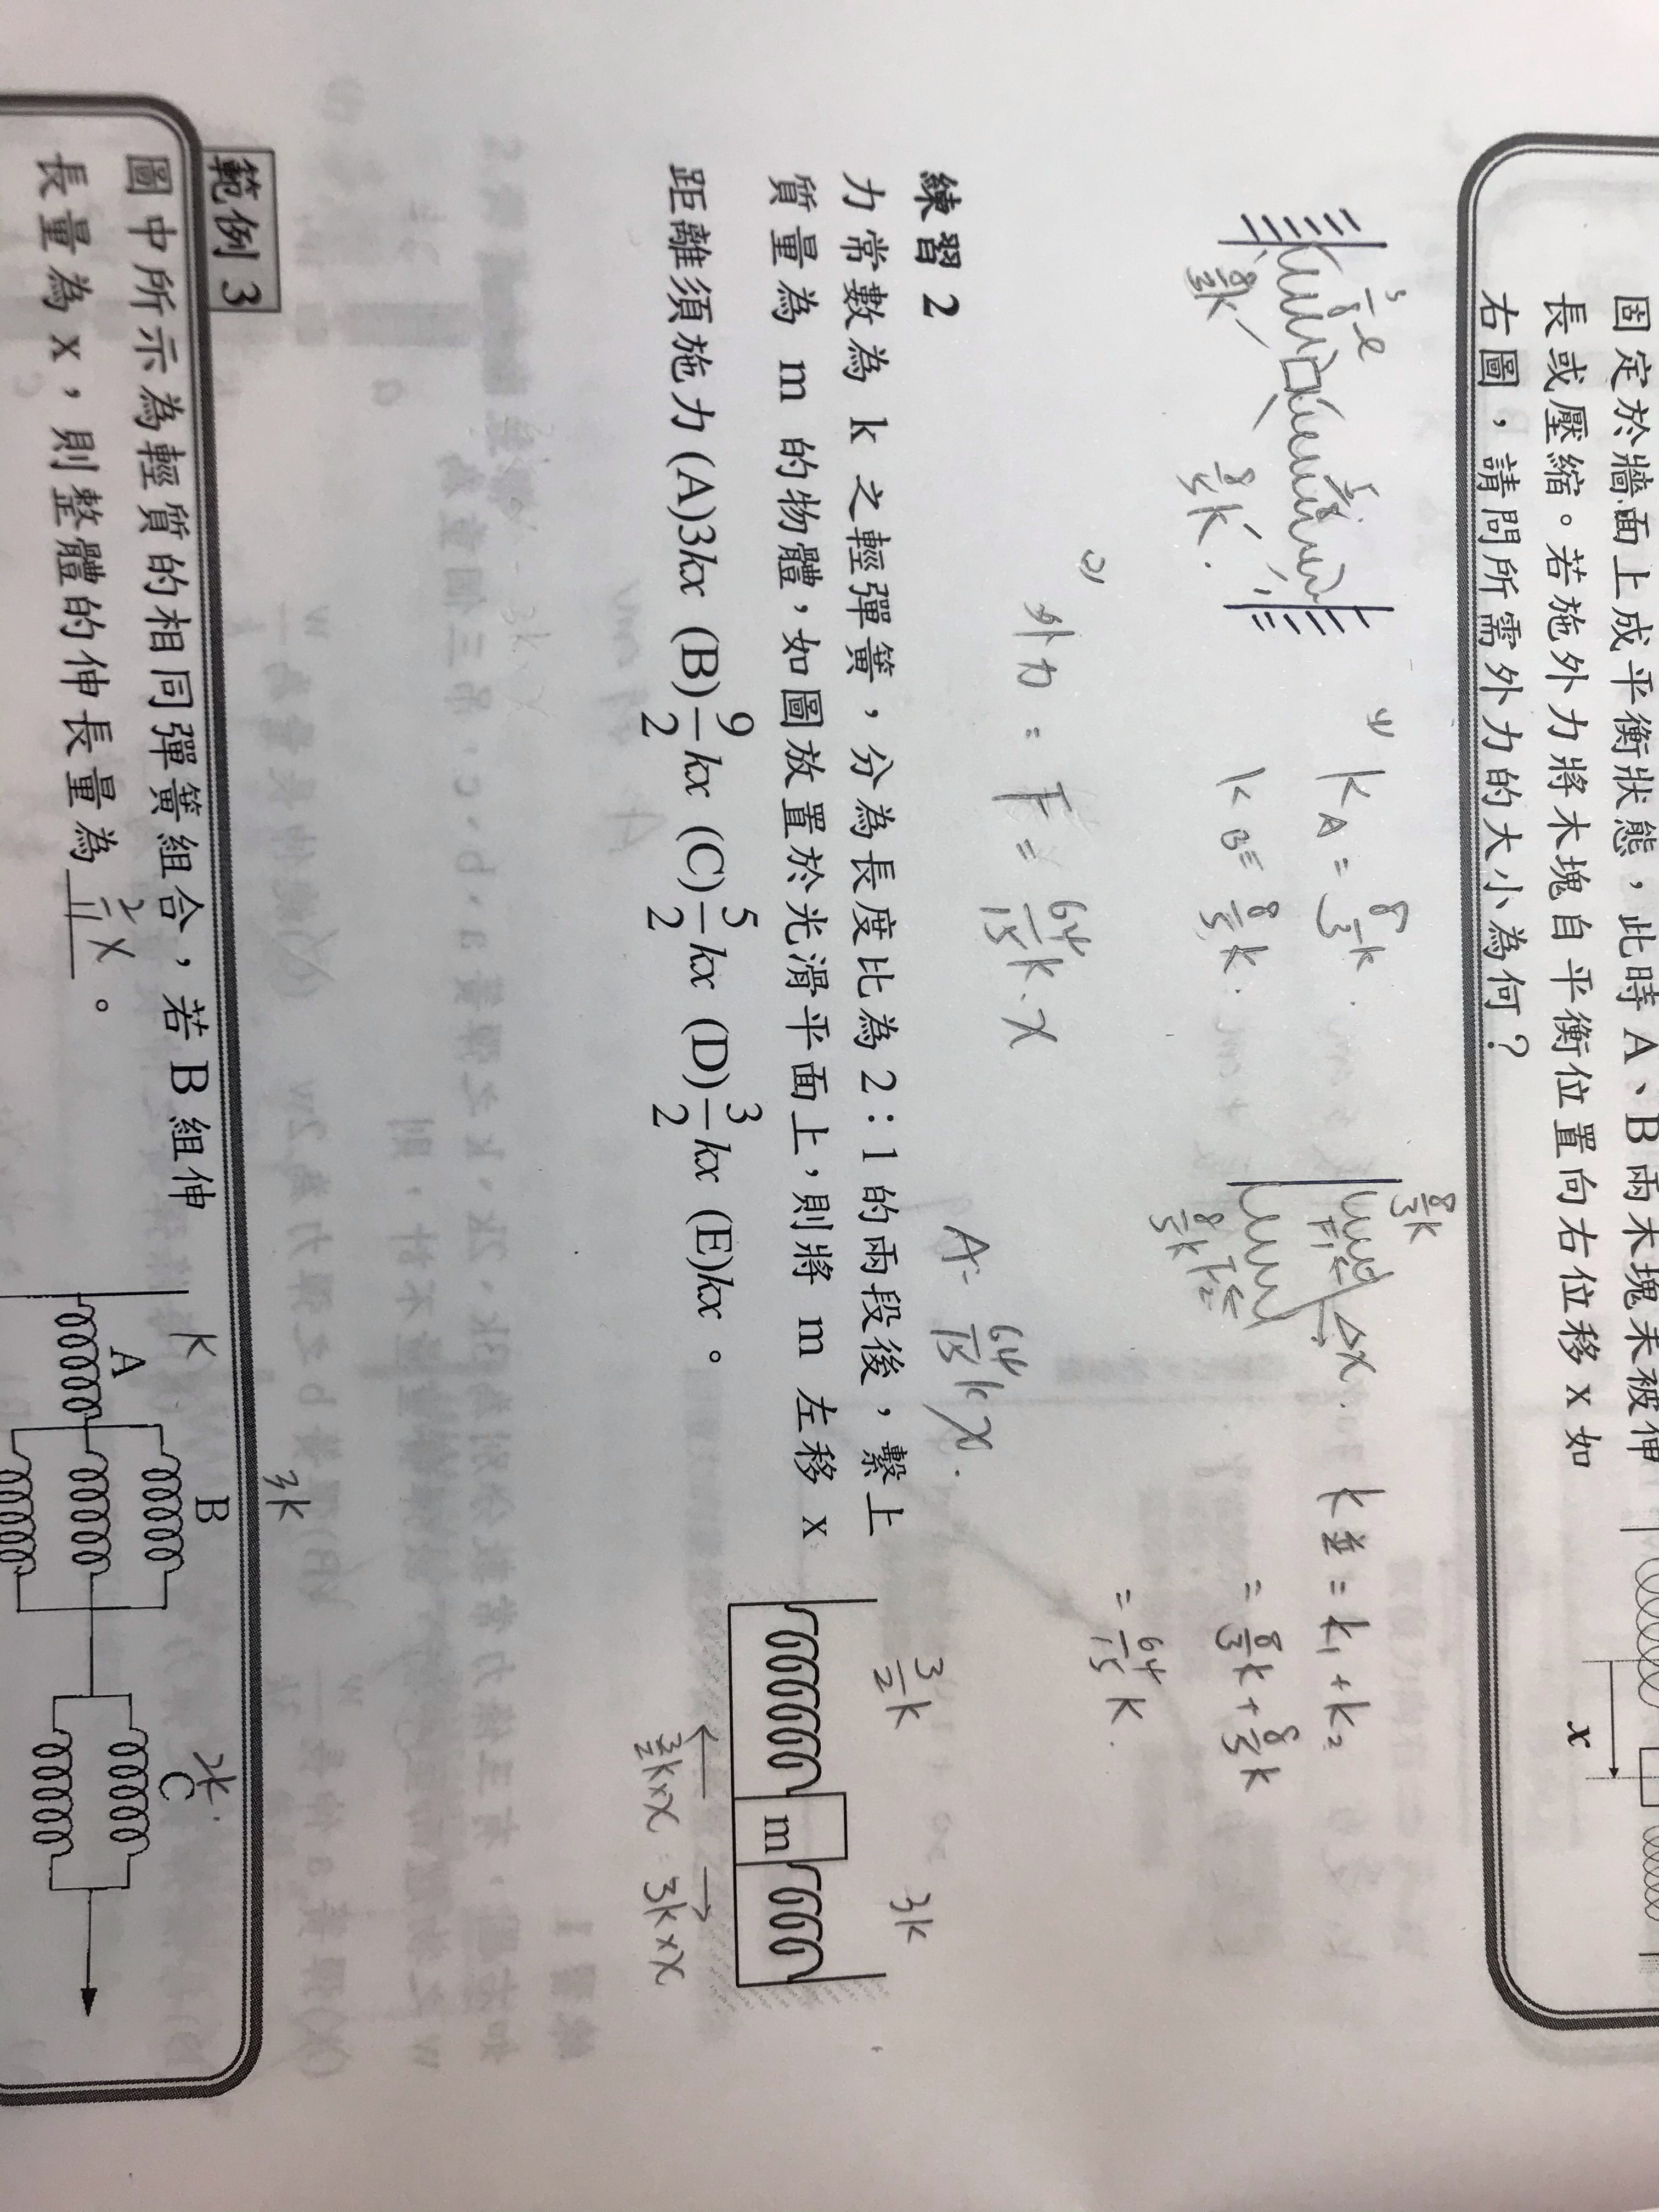 固定於牆面上成平衡狀態，此時 A、B 兩木塊未被伸
長或壓縮。若施外力將木塊自平衡位置向右位移 x 如
右圖，請問所需外力的大小為何？
x
(1) kA = 8/3 k.
kB = 8/5 k.
3/8 ℓ
8/3 k
8/5 k.
8/3 k
F1
Δx.
8/5 k
F2
k並 = k1 + k2
= 8/3 k + 8/5 k
= 64/15 k.
(2) 外力: F = 64/15 k · x
A: 64/15 kx.
練習 2
力常數為 k 之輕彈簧，分為長度比為 2：1 的兩段後，繫上
質量為 m 的物體，如圖放置於光滑平面上，則將 m 左移 x
距離須施力 (A)3kx (B)9/2 kx (C)5/2 kx (D)3/2 kx (E)kx。
3/2 k
3k
m
←
→
3/2 k×x
3k×x
範例 3
圖中所示為輕質的相同彈簧組合，若 B 組伸
長量為 x，則整體的伸長量為 11/2 x。
k
3k
2k.
A
B
C